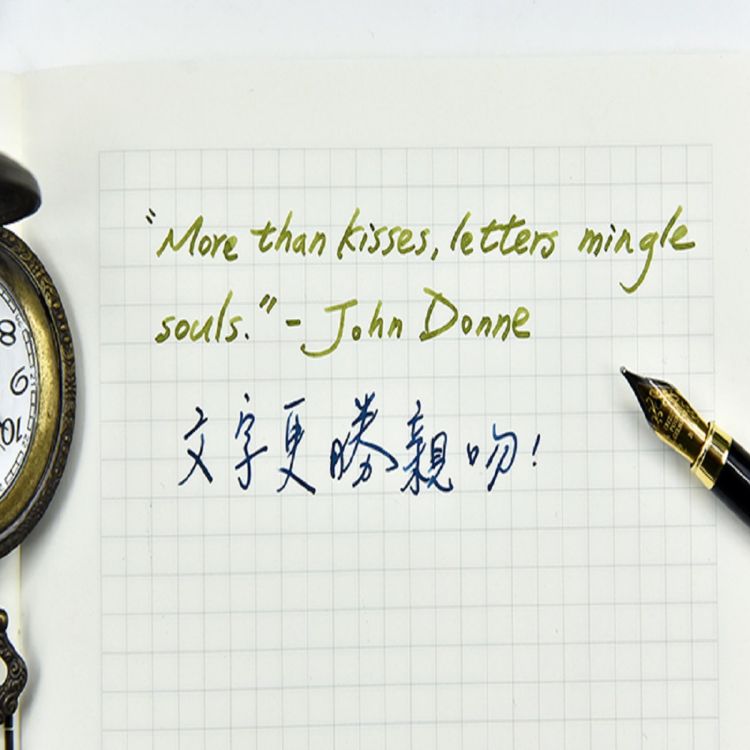 "More than kisses, letters mingle
souls." - John Donne
文字更勝親吻!
8
9
10